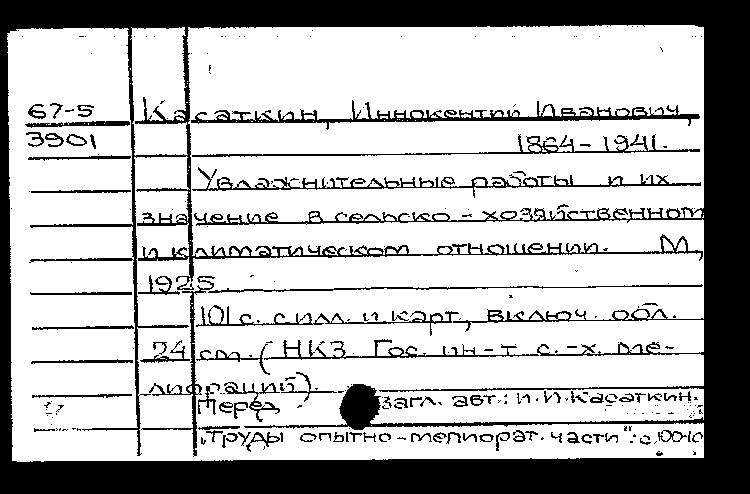 67-5 Касаткин, Иннокентий Иванович,
3901 1864-1941.
Увлажнительные работы и их
значение в сельско-хозяйственном
и климатическом отношении. М,
1925.
101 с. с илл. и карт, включ. обл.
24 см. (НКЗ. Гос. ин-т с.-х. ме-
лиораций).
Перед загл. авт.: И.И. Касаткин.
"Труды опытно-мелиорат. части": с.